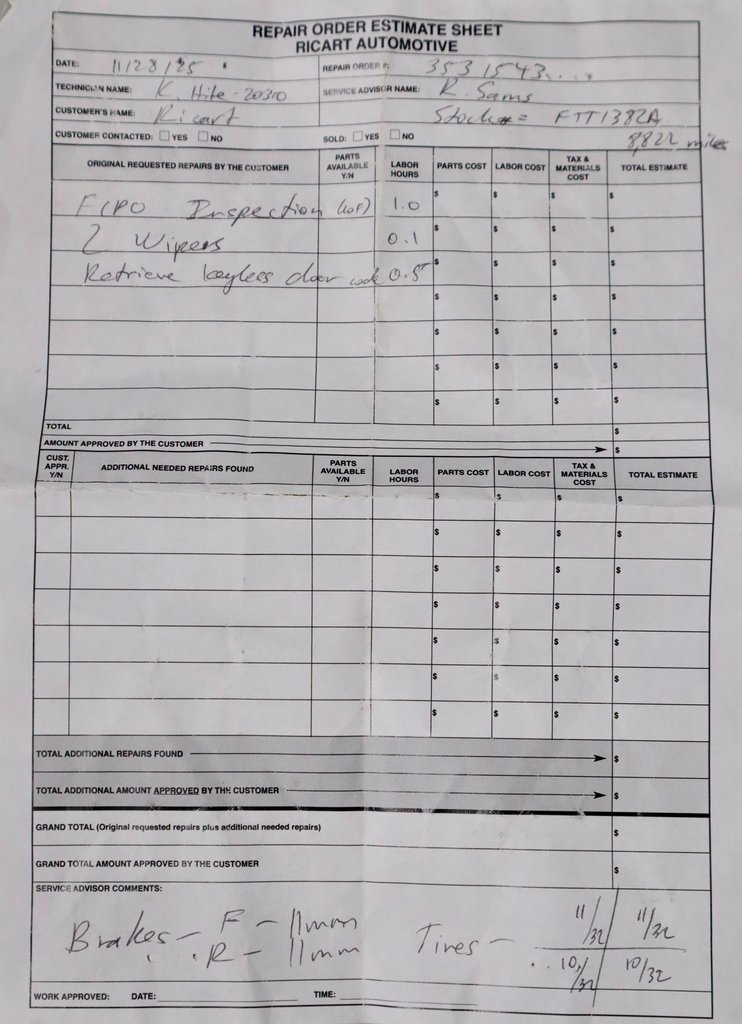 REPAIR ORDER ESTIMATE SHEET
RICART AUTOMOTIVE
DATE: 11/28/25 REPAIR ORDER #: 3531543....
TECHNICIAN NAME: K. Hite - 20310 SERVICE ADVISOR NAME: R. Sams
CUSTOMER'S NAME: Ricart Stock #= FTT1382A
CUSTOMER CONTACTED: YES NO SOLD: YES NO 8,822 miles
ORIGINAL REQUESTED REPAIRS BY THE CUSTOMER PARTS AVAILABLE Y/N LABOR HOURS PARTS COST LABOR COST TAX & MATERIALS COST TOTAL ESTIMATE
FCPO Inspection (LOF) 1.0 $ $ $ $
2 Wipers 0.1 $ $ $ $
Retrieve keyless door code 0.5 $ $ $ $
$ $ $ $
$ $ $ $
$ $ $ $
$ $ $ $
TOTAL $
AMOUNT APPROVED BY THE CUSTOMER $
CUST. APPR. Y/N ADDITIONAL NEEDED REPAIRS FOUND PARTS AVAILABLE Y/N LABOR HOURS PARTS COST LABOR COST TAX & MATERIALS COST TOTAL ESTIMATE
$ $ $ $
$ $ $ $
$ $ $ $
$ $ $ $
$ $ $ $
$ $ $ $
$ $ $ $
TOTAL ADDITIONAL REPAIRS FOUND $
TOTAL ADDITIONAL AMOUNT APPROVED BY THE CUSTOMER $
GRAND TOTAL (Original requested repairs plus additional needed repairs) $
GRAND TOTAL AMOUNT APPROVED BY THE CUSTOMER $
SERVICE ADVISOR COMMENTS:
Brakes - F - 11mm Tires - 11/32 11/32
R - 11mm 10/32 10/32
WORK APPROVED: DATE: TIME: